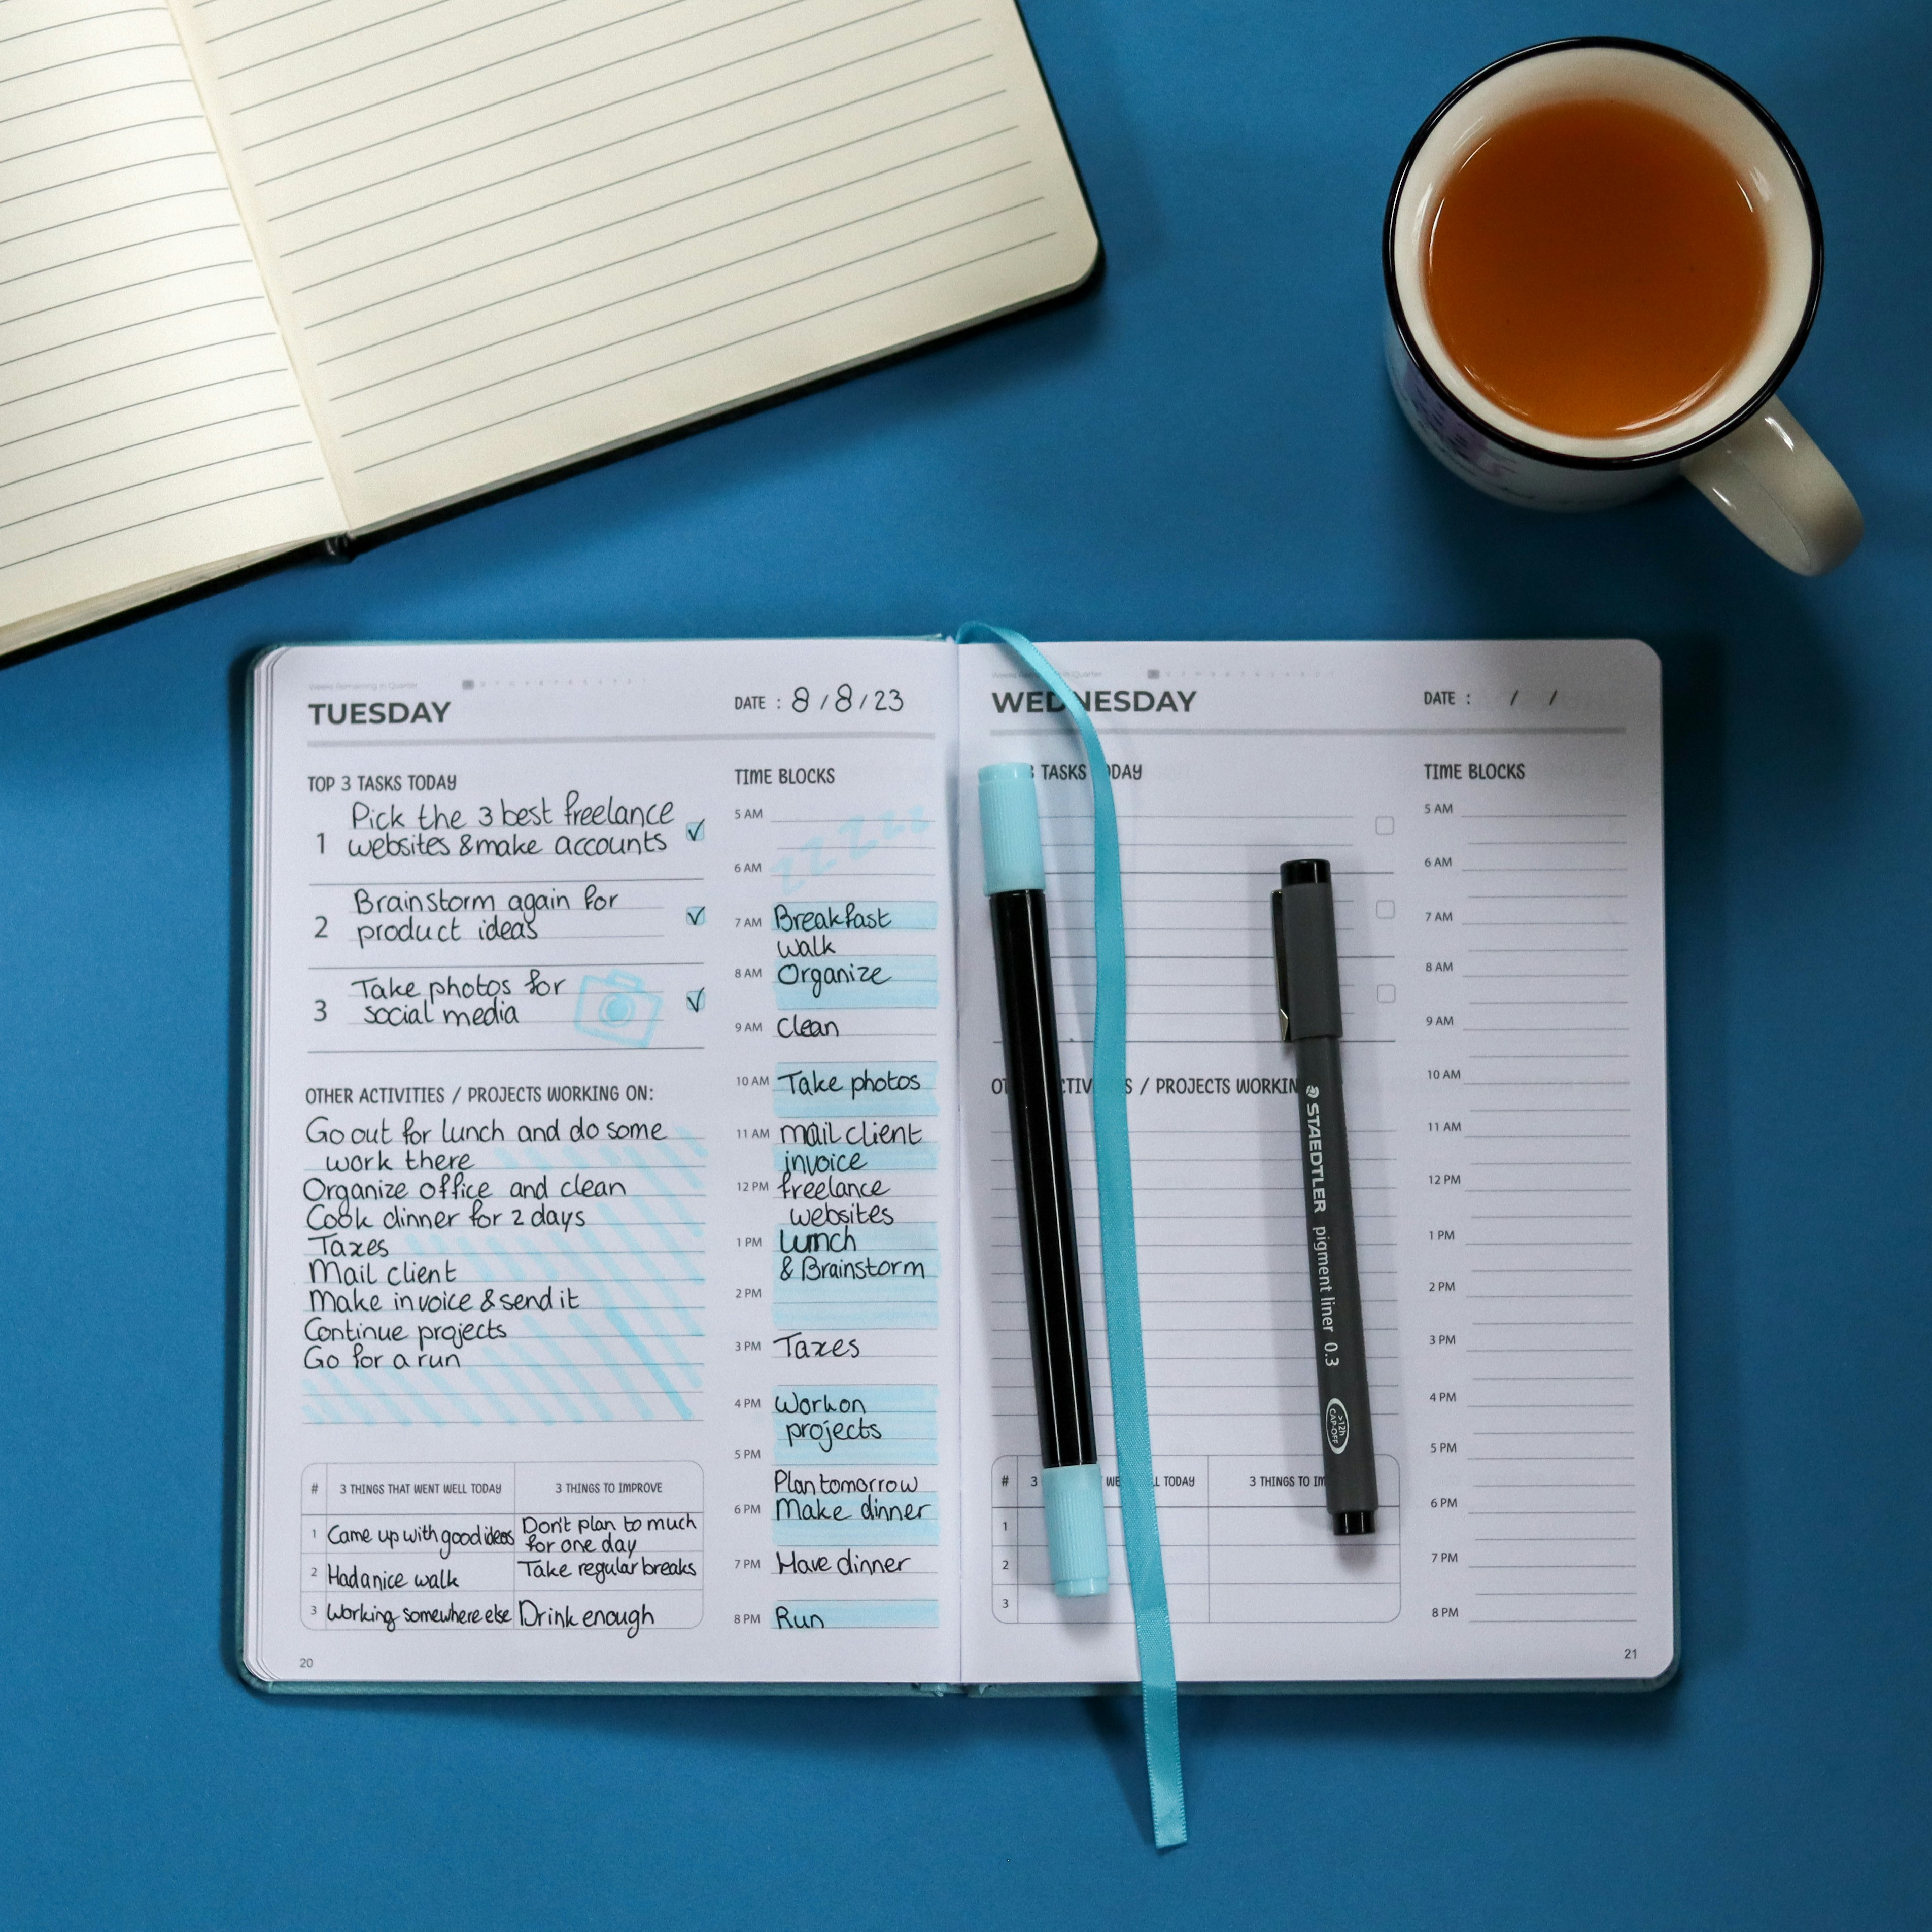 Weeks Remaining in Quarter
TUESDAY
DATE : 8/8/23
TOP 3 TASKS TODAY
1 Pick the 3 best freelance
websites & make accounts
2 Brainstorm again for
product ideas
3 Take photos for
social media
OTHER ACTIVITIES / PROJECTS WORKING ON:
Go out for lunch and do some
work there
Organize office and clean
Cook dinner for 2 days
Taxes
Mail client
Make invoice & send it
Continue projects
Go for a run
# 3 THINGS THAT WENT WELL TODAY 3 THINGS TO IMPROVE
1 Came up with good ideas Don't plan to much
for one day
2 Had a nice walk Take regular breaks
3 Working somewhere else Drink enough
20
TIME BLOCKS
zzzzzz
5 AM
6 AM
7 AM Breakfast
walk
8 AM Organize
9 AM Clean
10 AM Take photos
11 AM mail client
invoice
12 PM freelance
websites
1 PM Lunch
& Brainstorm
2 PM
3 PM Taxes
4 PM Work on
projects
5 PM
Plan tomorrow
6 PM Make dinner
7 PM Have dinner
8 PM Run
WEDNESDAY
DATE : / /
3 TASKS TODAY
OTHER ACTIVITIES / PROJECTS WORKIN
# 3 WE L TODAY 3 THINGS TO IM
1
2
3
TIME BLOCKS
5 AM
6 AM
7 AM
8 AM
9 AM
10 AM
11 AM
12 PM
1 PM
2 PM
3 PM
4 PM
5 PM
6 PM
7 PM
8 PM
21
STAEDTLER pigment liner 0.3
>12h
CAP-OFF